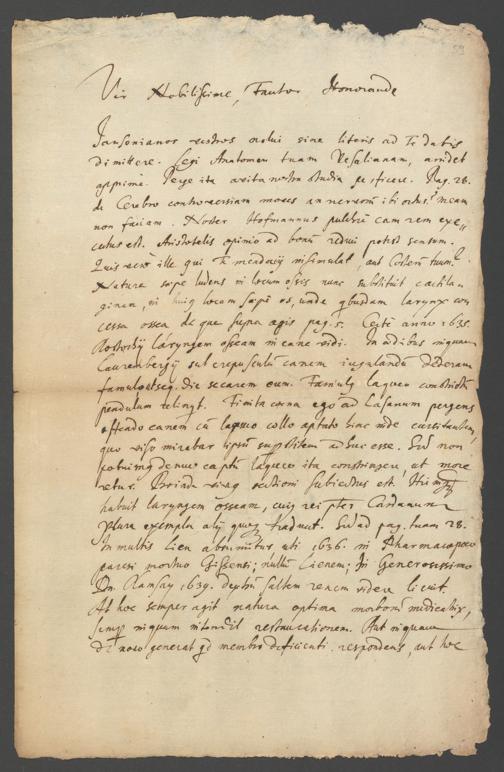 59
Vir Nobilissime, Fautor Honorande
Jansonianos vestros nolui sine literis ad Te datis
dimittere. Legi Anatomen tuam Vesalianam, arridet
apprime. Perge ita avita nostra studia Pag. 28.
de Cerebro controversiam moves an nervorum ibi ortus? meam
non faciam. Noster Hofmannus pulchre eam rem exe,,
cutus est. Aristotelis opinio ad bonum reduci potest sensum.
Quis vero ille qui Te mendacij insimulat, aut Costerum tuum?
Natura saepe ludens in locum ossis nunc substituit cartila,
ginem, in huius locum saepe os, unde quibusdam larynx con
cessa ossea de qua supra agis pag. 5. Certe anno 1635.
Rostochij laryngem osseam in cane vidi. In aedibus inquam
Laurenbergij sub crepusculum canem iugulandum dederam
famulo die secarem eum. Famulus laqueo constrictum
pendulum relinqt. Finita coena ego ad Lasanum pergens
offendo canem cum laqueo collo aptato hinc inde cursitantem,
quo viso mirabar ipsum superstitem adhuc esse. Sed non
denuo captum laqueo ita constringere, ut more
retur. Postridie vivus sectioni subiectus est.
habuit laryngem osseam, cuius rei praeter Cardanum
plura exempla alij quoque tradunt. Sed ad pag. tuam 28.
In multis Lien absumitur uti 1636. in Pharmacopoeo
paresi mortuo Gissensi; nullum Lienem; In Generosissimo
Dn. Ramsay 1639. dextrum saltem renem videre licuit.
At hoc semper agit natura optima morborum medicatrix,
semper inquam intendit restaurationem. Aut inquam
de novo generat quid membro deficienti respondens, aut hoc